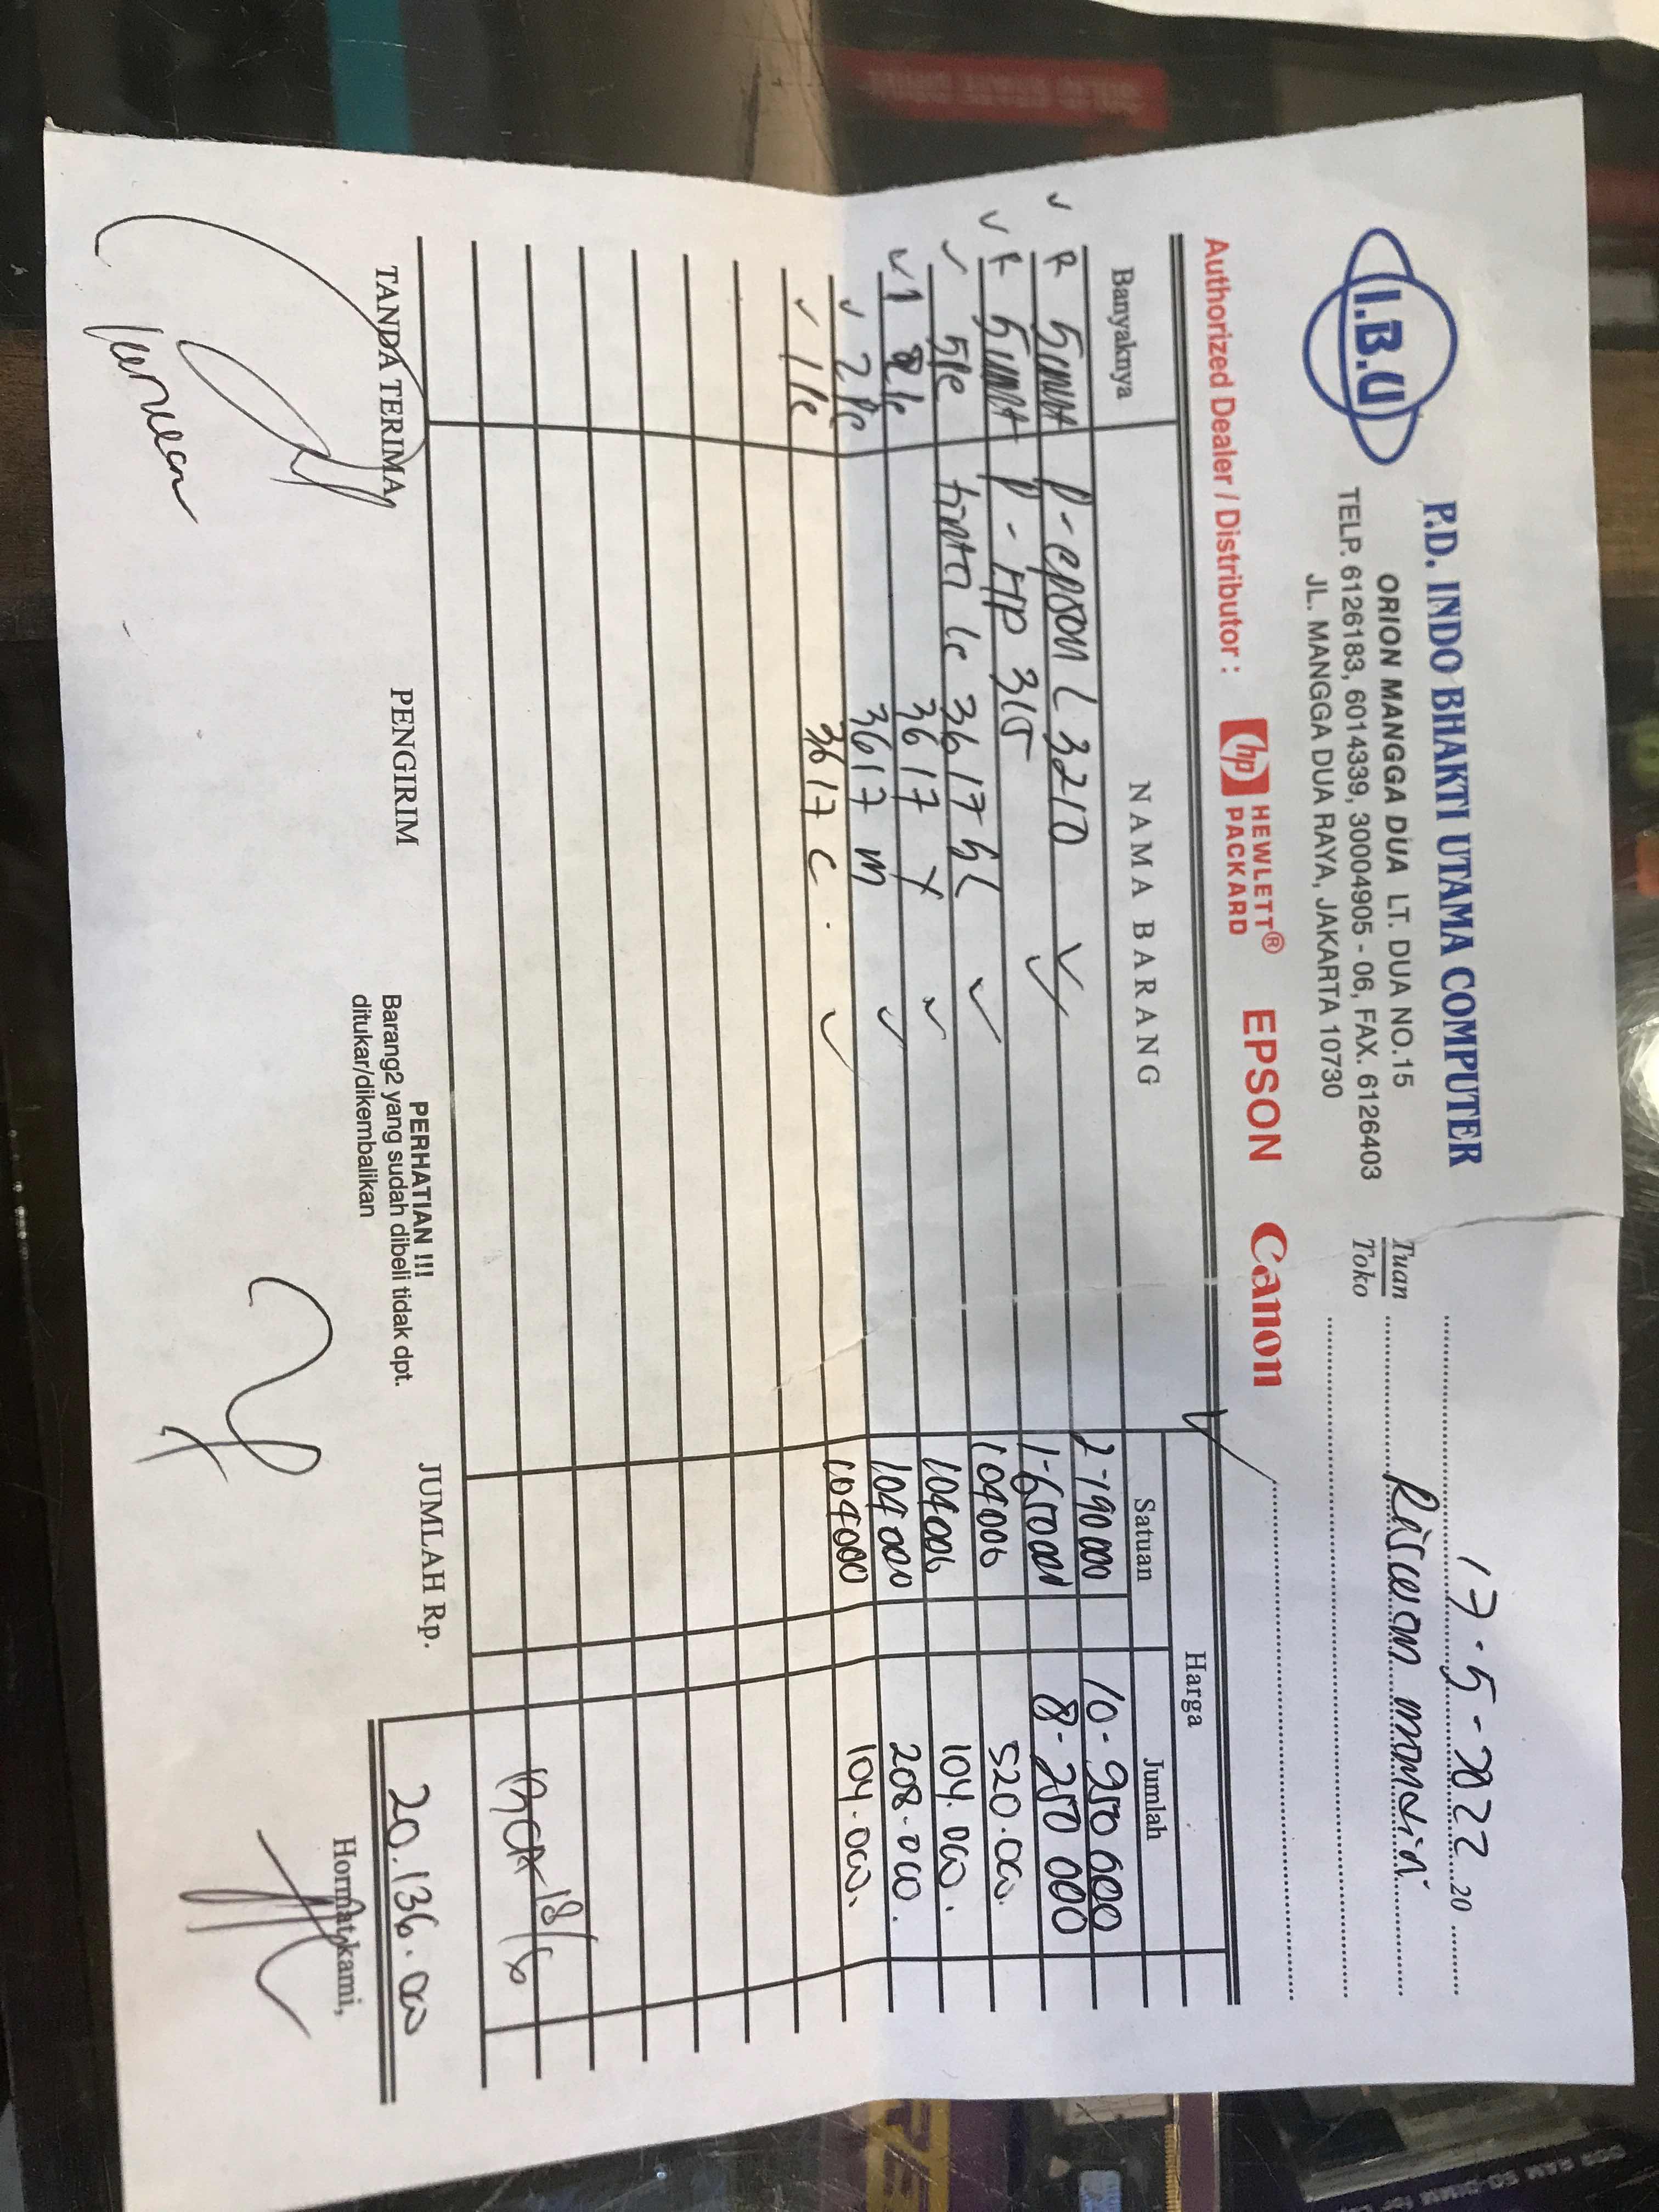 I.B.U
P.D. INDO BHAKTI UTAMA COMPUTER
ORION MANGGA DUA LT. DUA NO.15
TELP. 6126183, 6014339, 30004905 - 06, FAX. 6126403
JL. MANGGA DUA RAYA, JAKARTA 10730
17-5-2022 20
Tuan
Toko
Authorized Dealer / Distributor : hp HEWLETT® PACKARD EPSON Canon
Banyaknya NAMA BARANG Harga
Satuan Jumlah
5 unit P-epson L 3210 2-190 000 10-950 000
5 unit P-HP 315 1-650 000 8-250 000
tinta 3617 104000 520.000
1 3617 Y 104000 104.000.
2 3617 m 104 000 208-000.
1 3617 C 104000 104.000.
18/5
TANDA TERIMA, PENGIRIM
PERHATIAN !!!
Barang2 yang sudah dibeli tidak dpt.
ditukar/dikembalikan
JUMLAH Rp. 20.136.00
Hormat kami,